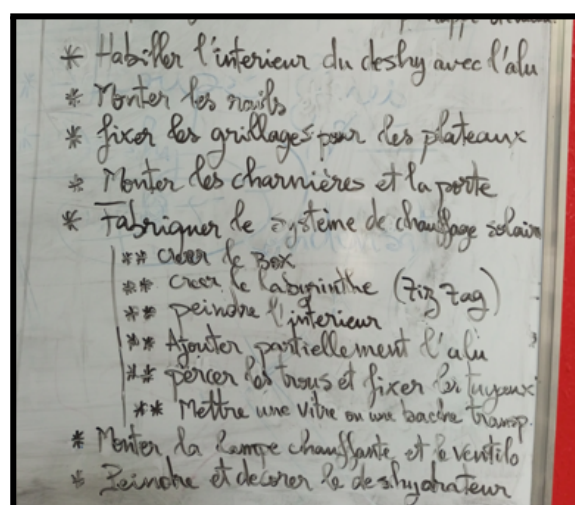 * Habiller l'interieur du deshy avec l'alu
* Monter les rails
* fixer les grillages pour les plateaux
* Monter les charnières et la porte
* Fabriquer le système de chauffage solair
** creer le Box
** creer le labyrinthe (Ziz Zag)
** peindre l'interieur
** Ajouter partiellement l'alu
** pércer les trous et fixer les tuyaux
** Mettre une vitre ou une bache transp.
* Monter la lampe chauffante et le ventilo
* Peindre et decorer le deshydrateur